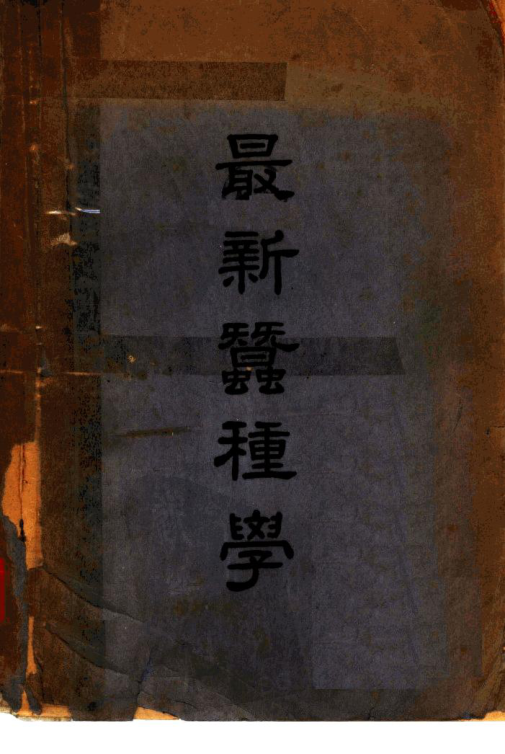 最新蠶種學